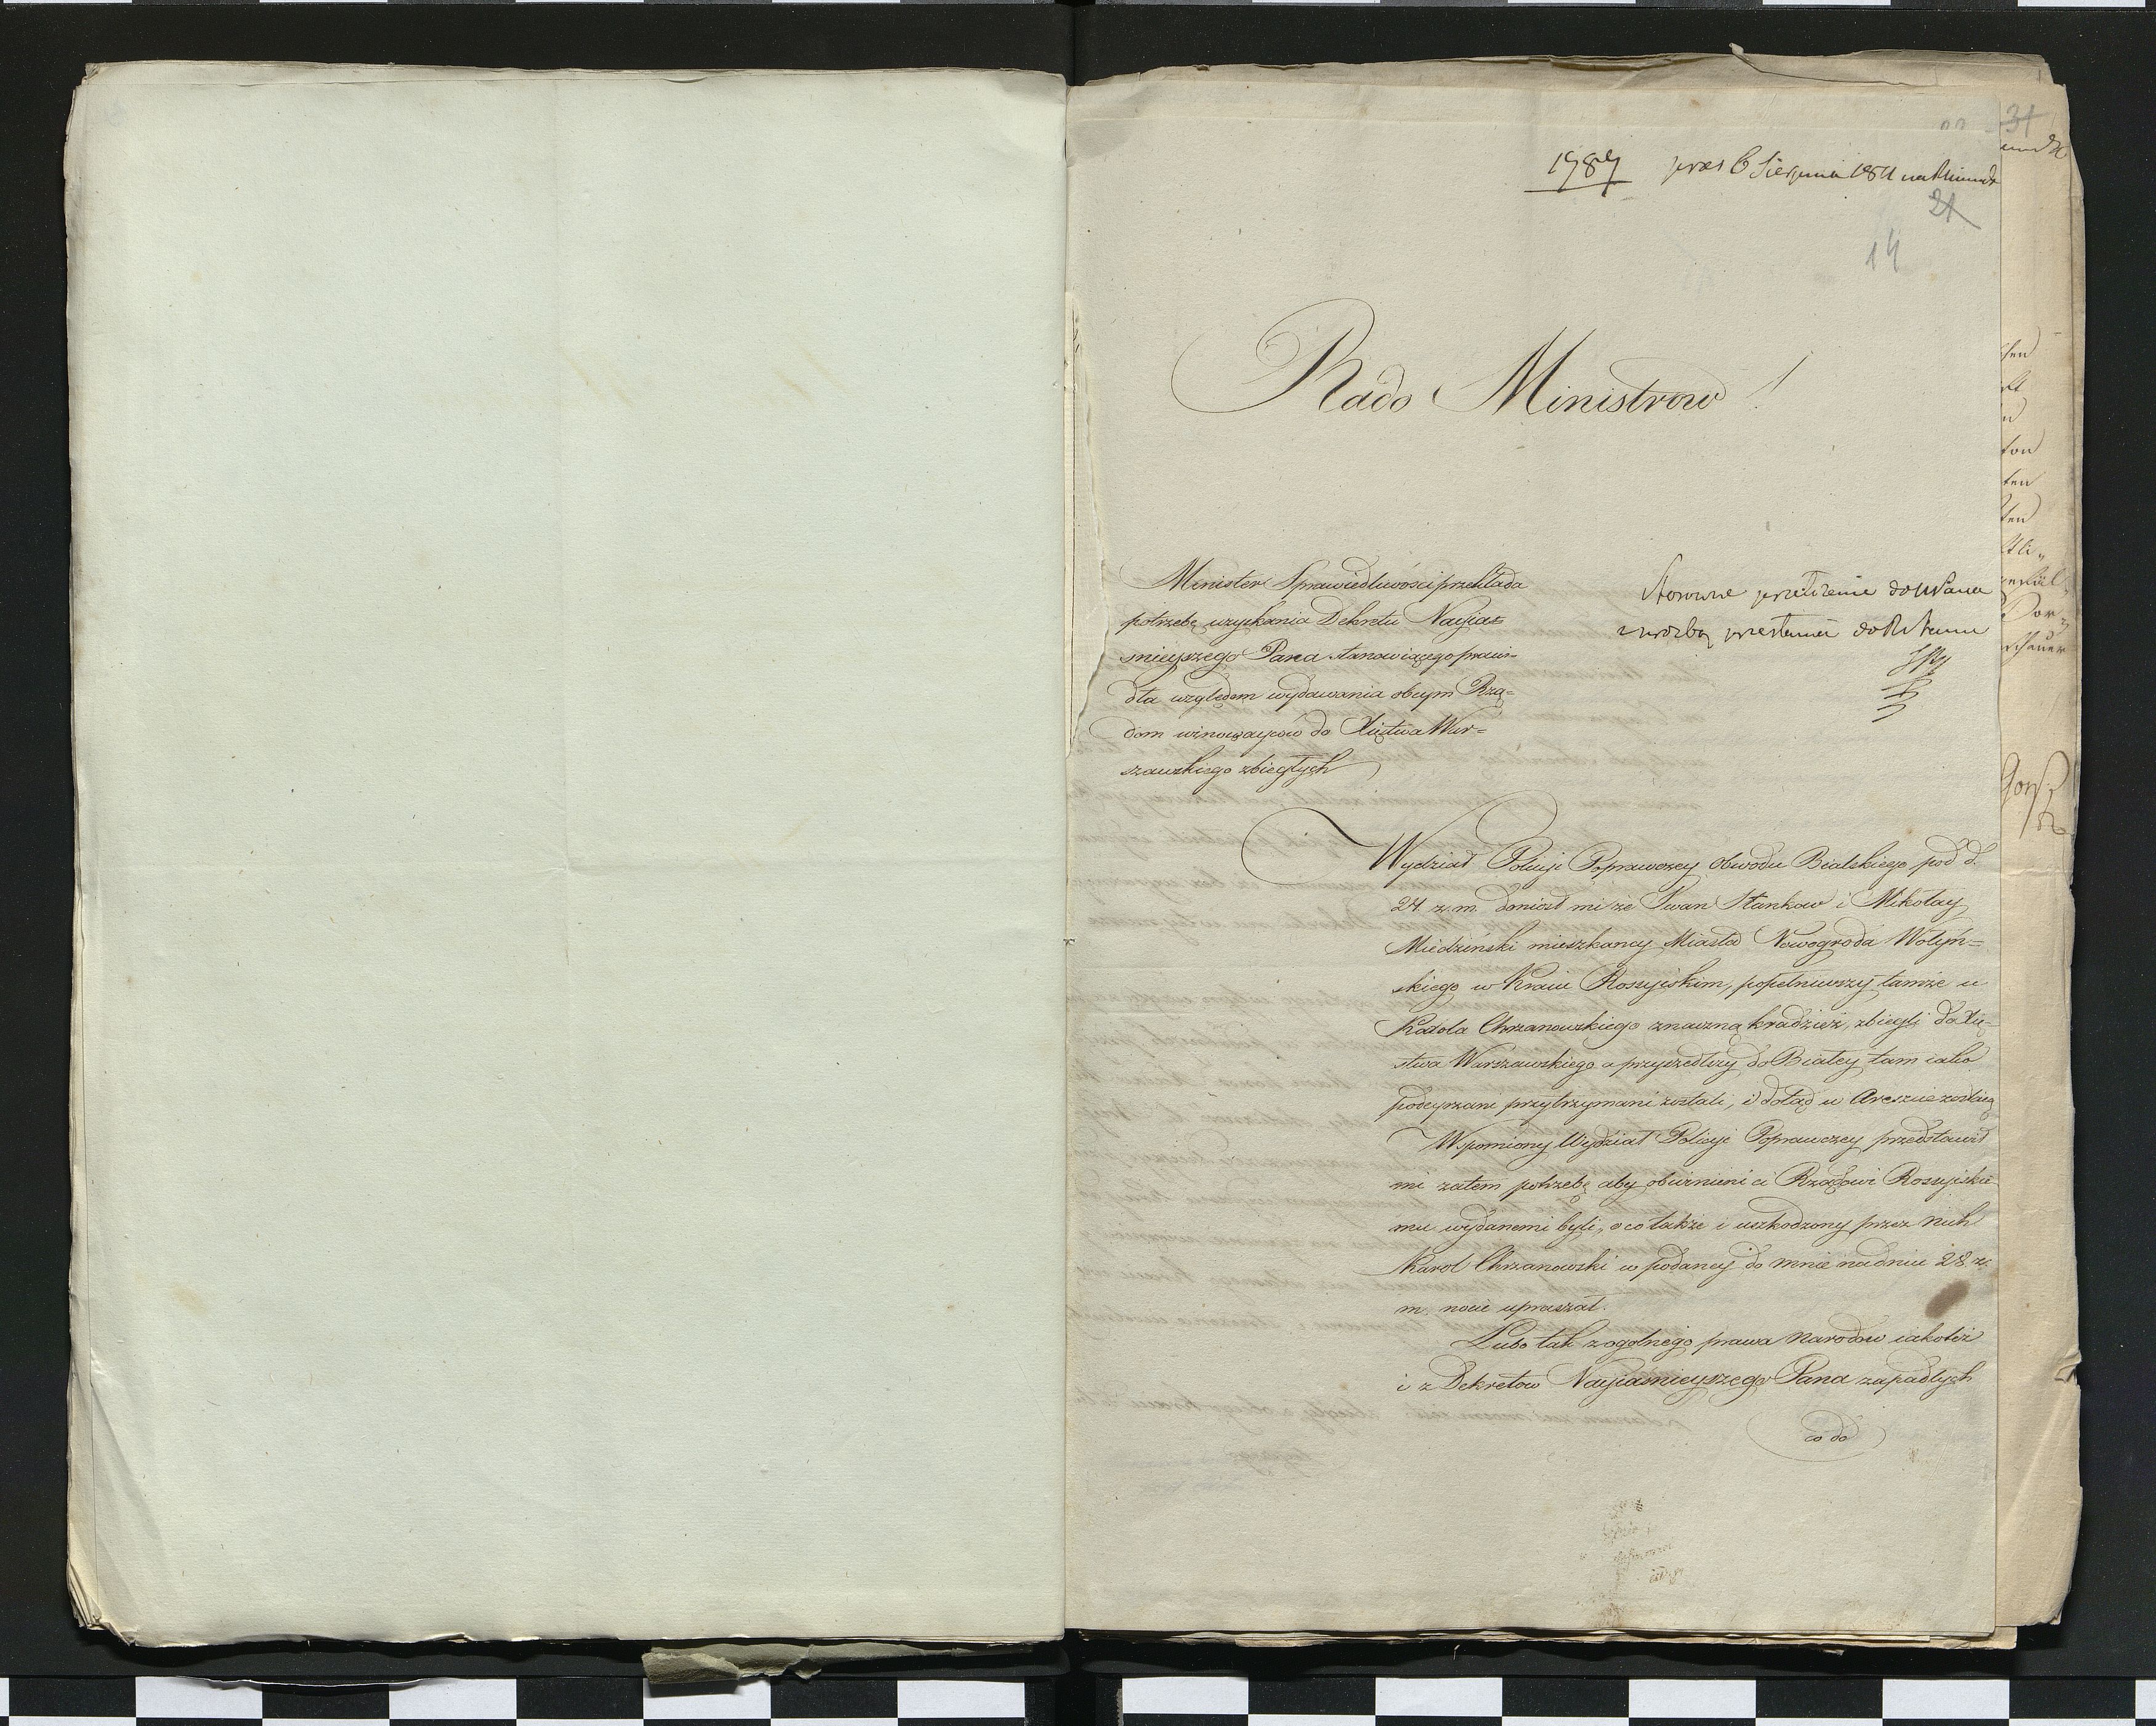 31
1987 pres 6 Sierpnia 1811
21
14
Rado Ministrow!
Minister Sprawiedliwości przekłada
potrzebę uzyskania Dekretu Nayia-
snieyszego Pana stanowiącego prawi-
dła względem wydawania obcym Rzą-
dom winowaycow do Xięstwa War-
szawskiego zbiegłych
Stosowne przełożenie do
z prozbą przesłania do
Wydział Policyi Poprawczey Obwodu Bialskiego pod d.
24 z. m. doniosł mi że Iwan Stankow i Mikołay
Miedziński mieszkancy Miasta Nowogroda Wołyń-
skiego w Kraiu Rossyiskim, popełniwszy tamże u
Karola Chrzanowskiego znaczną kradzież, zbiegli do Xię-
stwa Warszawskiego a przyszedłszy do Białey tam iako
podeyrzani przytrzymani zostali, i dotąd w Areszcie
Wspomiony Wydział Policyi Poprawczey przedstawił
mi zatem potrzebę aby obwinieni ci Rządowi Rossyiskie-
mu wydanemi byli, o co także i uszkodzony przez nich
Karol Chrzanowski w podaney do mnie na dniu 28 z.
m. nocie upraszał.
Lubo tak z ogolnego prawa Narodow iakoteż
i z Dekretow Nayiasnieyszego Pana zapadłych
co do